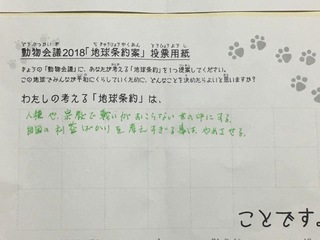 どうぶつかいぎ ちきゅうじょうやくあん とうひょうようし
動物会議2018「地球条約案」投票用紙
きょうの「動物会議」に、あなたが考える「地球条約」を1つ提案してください。
この地球でみんなが平和にくらしていくために、どんなことを決めたらよいと思いますか?
わたしの考える「地球条約」は、
人種や、宗教で戦いがおこらない世の中にする。
自国の利益ばかりを考えすぎる事は、やめさせる。
ことです。